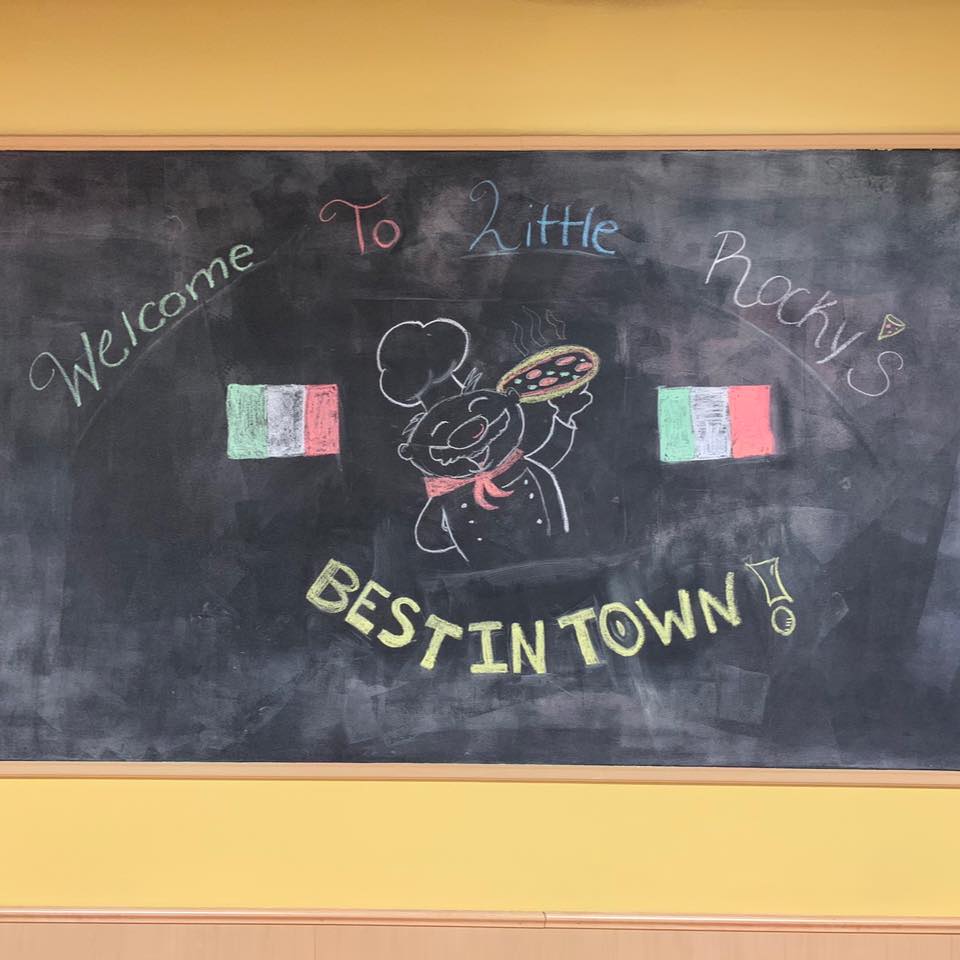 Welcome To Little Rocky's
BEST IN TOWN!